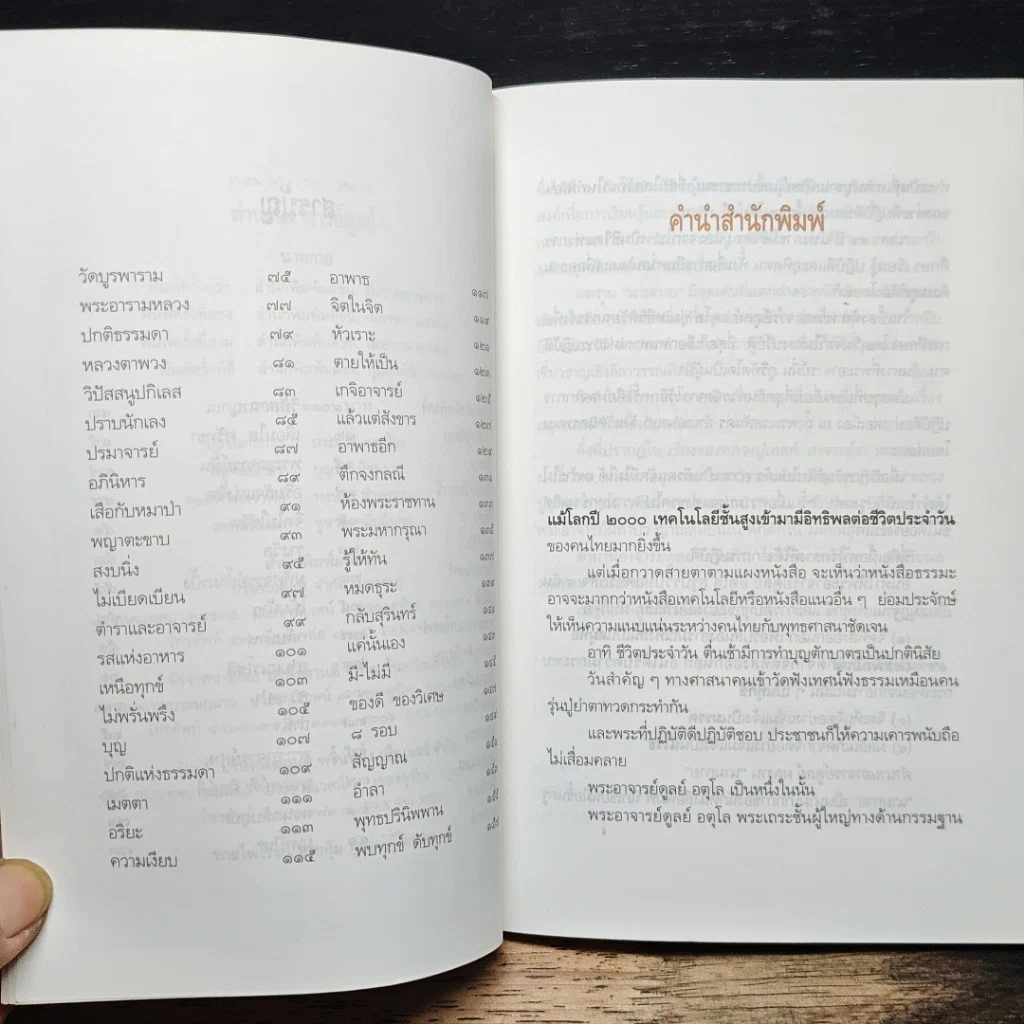 วัดบูรพาราม ๗๕
พระอารามหลวง ๗๗
ปกติธรรมดา ๗๙
หลวงตาพวง ๘๑
วิปัสสนูปกิเลส ๘๓
ปราบนักเลง ๘๕
ปรมาจารย์ ๘๗
อภินิหาร ๘๙
เสือกับหมาป่า ๙๑
พญาตะขาบ ๙๓
สงบนิ่ง ๙๕
ไม่เบียดเบียน ๙๗
ตำราและอาจารย์ ๙๙
รสแห่งอาหาร ๑๐๑
เหนือทุกข์ ๑๐๓
ไม่พรั่นพรึง ๑๐๕
บุญ ๑๐๗
ปกติแห่งธรรมดา ๑๐๙
เมตตา ๑๑๑
อริยะ ๑๑๓
ความเงียบ ๑๑๕
อาพาธ ๑๑๗
จิตในจิต ๑๑๙
หัวเราะ ๑๒๑
ตายให้เป็น ๑๒๓
เกจิอาจารย์ ๑๒๕
แล้วแต่สังขาร ๑๒๗
อาพาธอีก ๑๒๙
ตึกจงกลณี ๑๓๑
ห้องพระราชทาน ๑๓๓
พระมหากรุณา ๑๓๕
รู้ให้ทัน ๑๓๗
หมดธุระ ๑๓๙
กลับสุรินทร์ ๑๔๑
แค่นั้นเอง ๑๔๓
มี-ไม่มี ๑๔๕
ของดี ของวิเศษ ๑๔๗
๘ รอบ ๑๔๙
สัญญาณ ๑๕๑
อำลา ๑๕๓
พุทธปรินิพพาน ๑๕๕
พบทุกข์ ดับทุกข์ ๑๕๗
คำนำสำนักพิมพ์
แม้โลกปี ๒๐๐๐ เทคโนโลยีชั้นสูงเข้ามามีอิทธิพลต่อชีวิตประจำวัน
ของคนไทยมากยิ่งขึ้น
แต่เมื่อกวาดสายตาตามแผงหนังสือ จะเห็นว่าหนังสือธรรมะ
อาจจะมากกว่าหนังสือเทคโนโลยีหรือหนังสือแนวอื่น ๆ ย่อมประจักษ์
ให้เห็นความแนบแน่นระหว่างคนไทยกับพุทธศาสนาชัดเจน
อาทิ ชีวิตประจำวัน ตื่นเช้ามีการทำบุญตักบาตรเป็นปกตินิสัย
วันสำคัญ ๆ ทางศาสนาคนเข้าวัดฟังเทศน์ฟังธรรมเหมือนคน
รุ่นปู่ย่าตาทวดกระทำกัน
และพระที่ปฏิบัติดีปฏิบัติชอบ ประชาชนก็ให้ความเคารพนับถือ
ไม่เสื่อมคลาย
พระอาจารย์ดูลย์ อตุโล เป็นหนึ่งในนั้น
พระอาจารย์ดูลย์ อตุโล พระเถระชั้นผู้ใหญ่ทางด้านกรรมฐาน